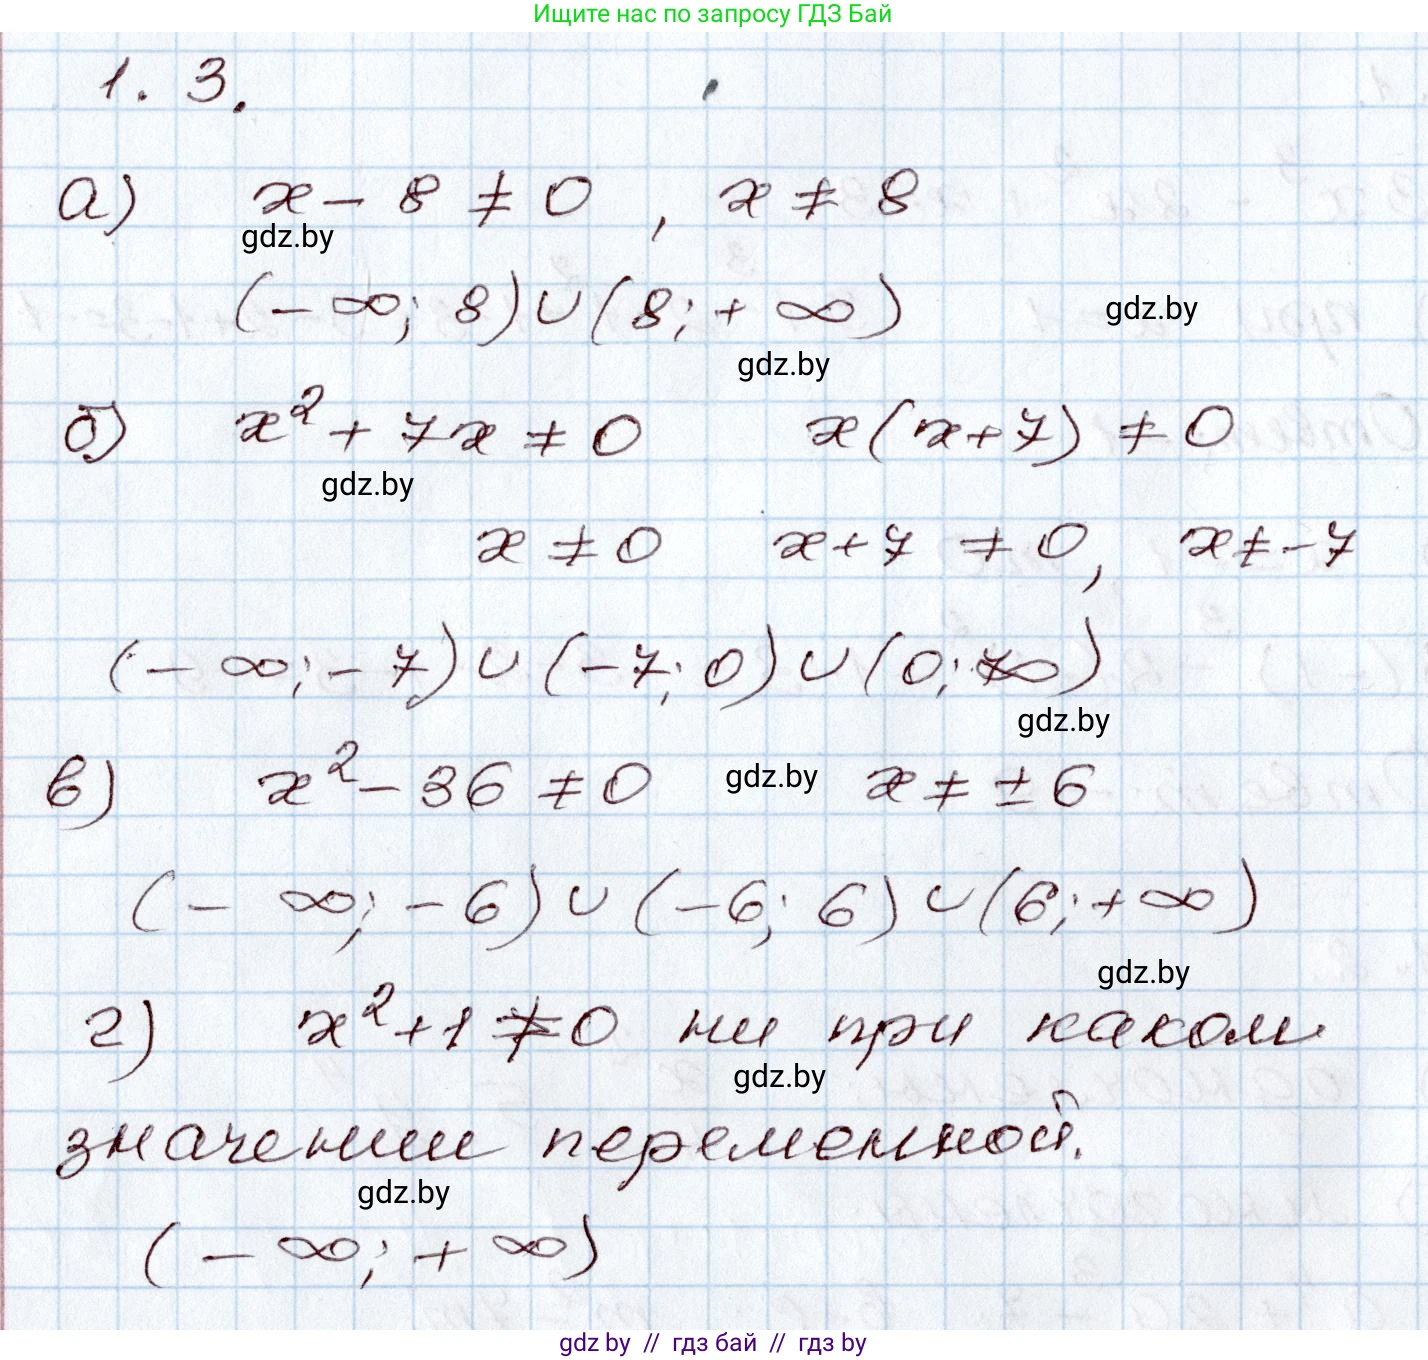 Ищите нас по запросу ГДЗ Бай
1.3.
а) x - 8 ≠ 0, x ≠ 8
gdz.by
(-∞; 8) ∪ (8; +∞)
gdz.by
gdz.by
б) x² + 7x ≠ 0 x(x+7) ≠ 0
gdz.by
x ≠ 0 x+7 ≠ 0, x ≠ -7
(-∞; -7) ∪ (-7; 0) ∪ (0; ∞)
gdz.by
в) x² - 36 ≠ 0 gdz.by x ≠ ±6
(-∞; -6) ∪ (-6; 6) ∪ (6; +∞)
gdz.by
г) x² + 1 ≠ 0 ни при каком
gdz.by
значении переменной.
gdz.by
(-∞; +∞)
gdz.by // гдз бай // гдз by